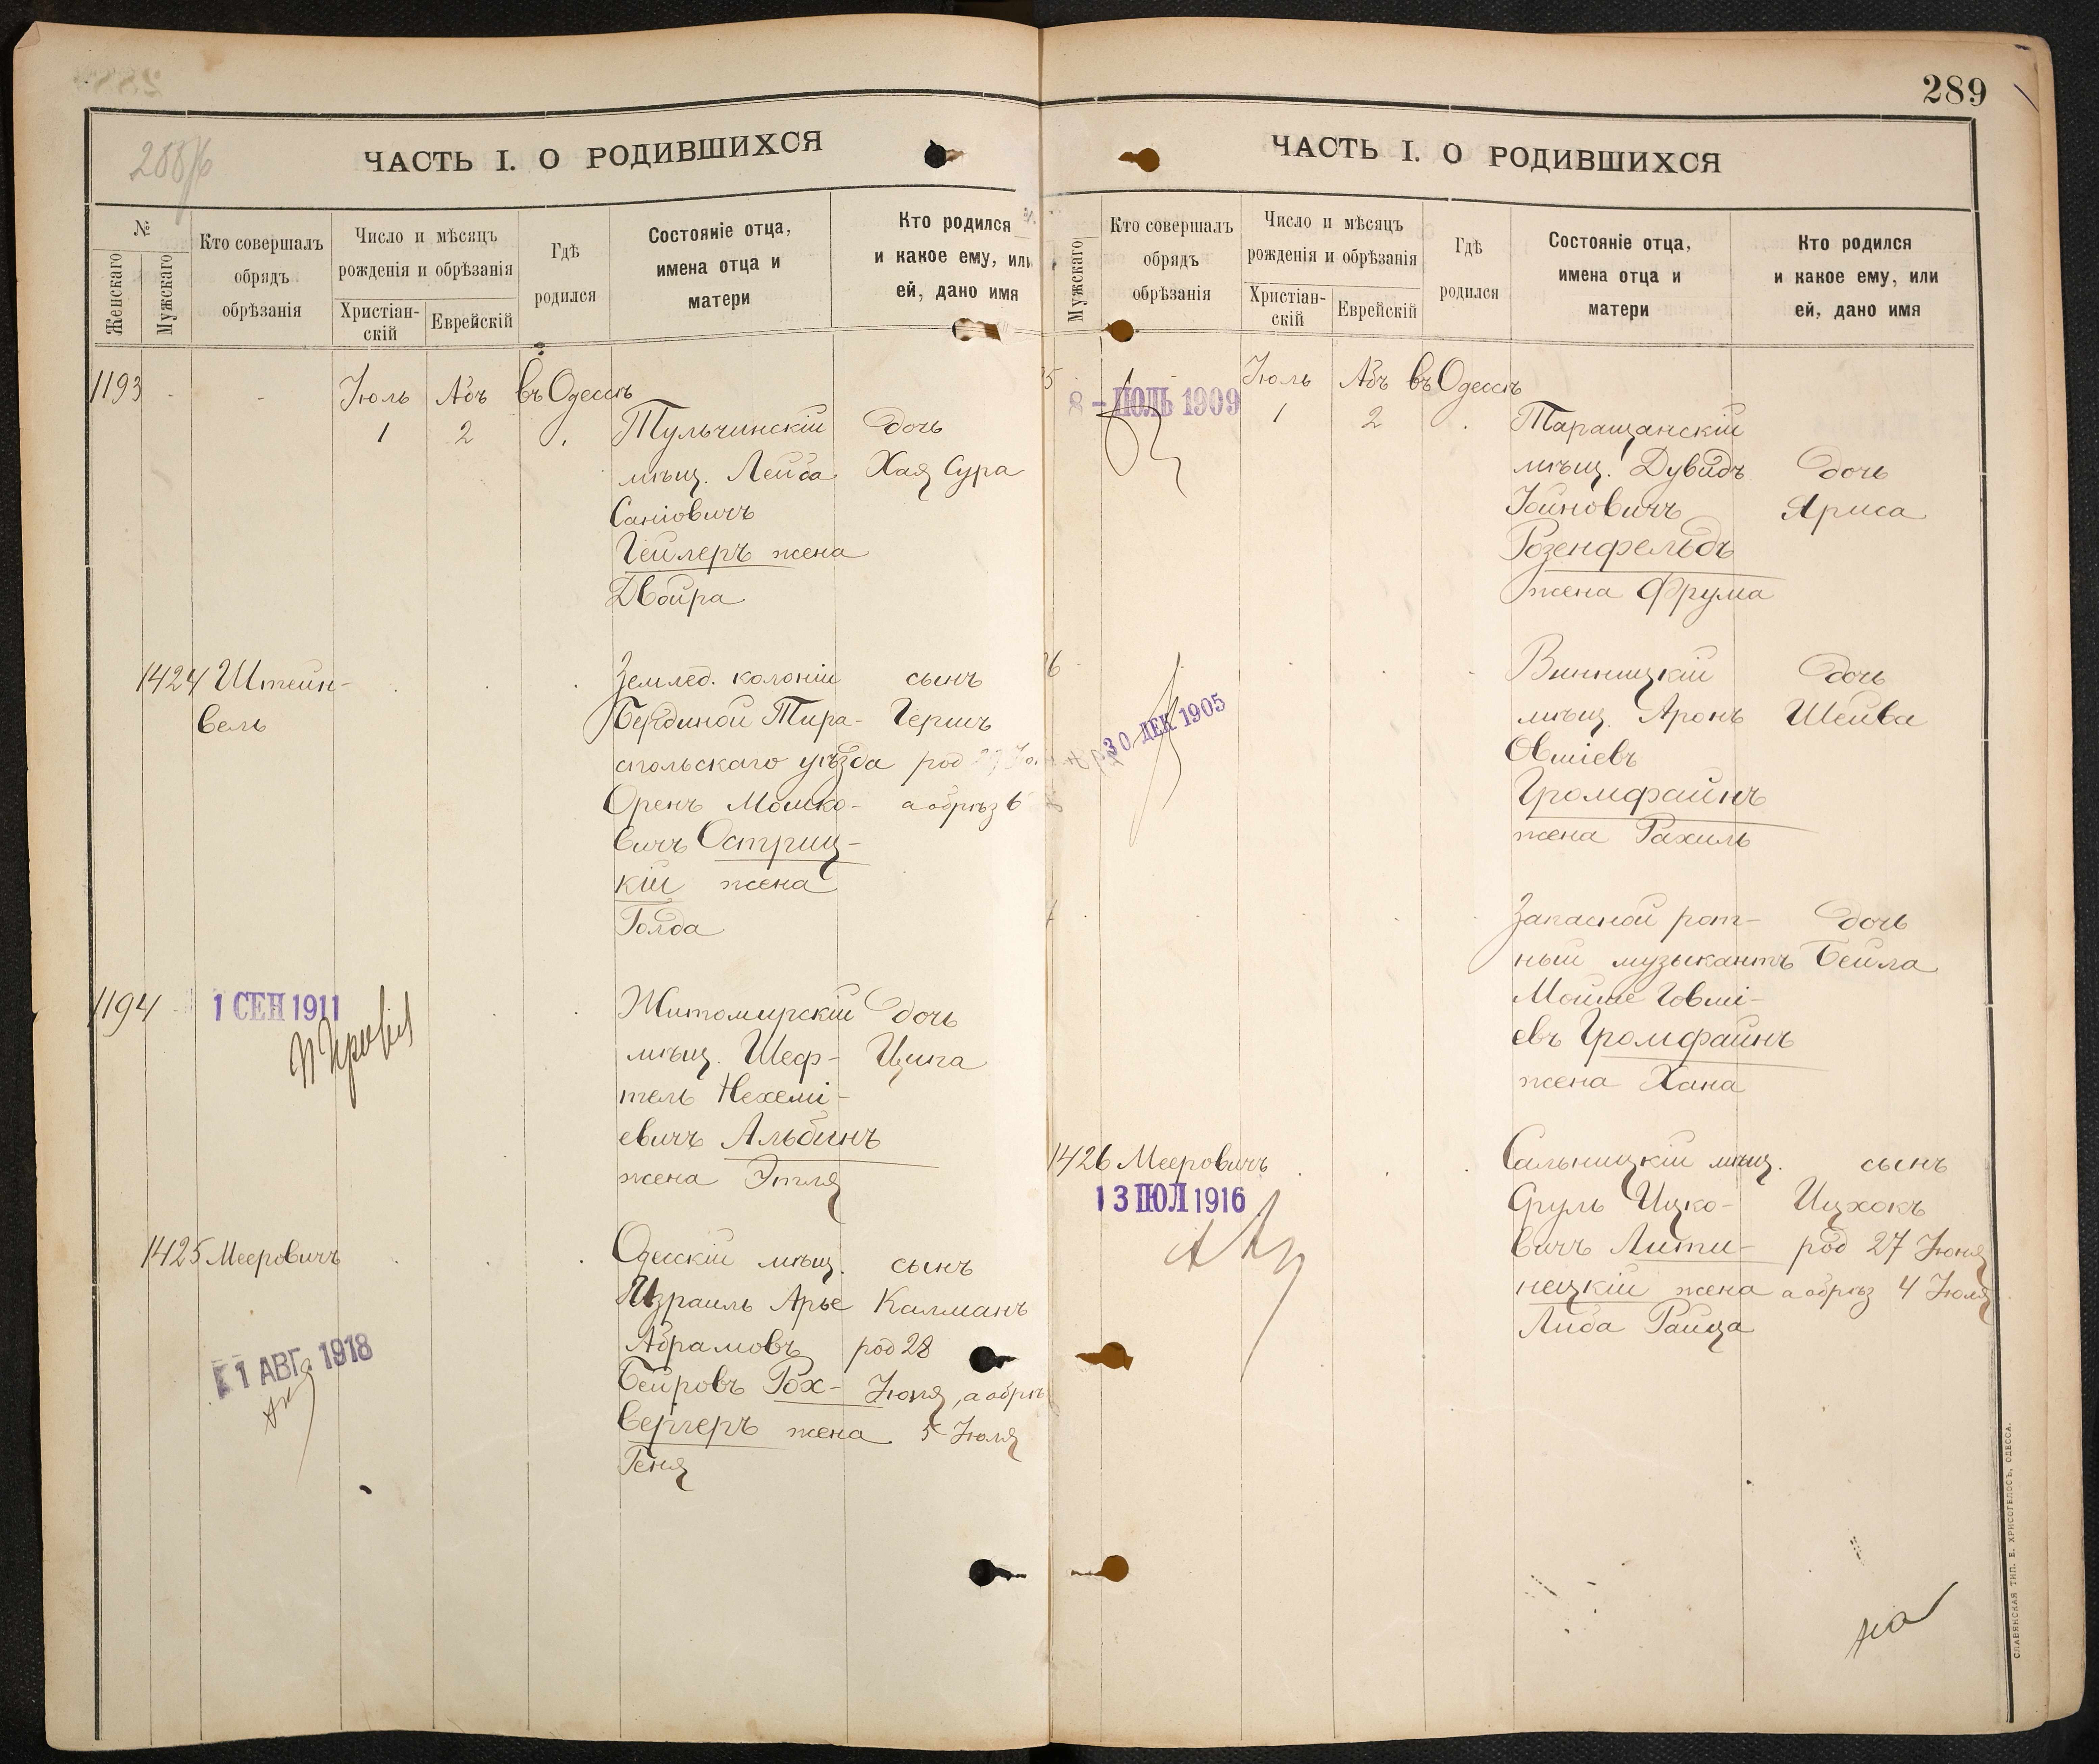 289
288/б
ЧАСТЬ I. О РОДИВШИХСЯ
№
Женскаго
Мужскаго
Кто совершалъ
обрядъ
обрѣзанія
Число и мѣсяцъ
рожденія и обрѣзанія
Христіан-
скій
Еврейскій
Гдѣ
родился
Состояніе отца,
имена отца и
матери
Кто родился
и какое ему, или
ей, дано имя
1193
Іюль Абъ въ Одессѣ
1 2
Тульчинскій дочь
мѣщ. Лейба Хая Сура
Саніовичъ
Гейлеръ жена
Двойра
1424 Штейн-
вель
Землед. колоніи сынъ
Тира- Гершъ
спольскаго уѣзда род
Оренъ Мошко- а обрѣз 6
вичъ Остриц-
кій жена
Голда
1194
1 СЕН 1911
Житомирскій дочь
мѣщ. Шеф- Ципа
тель Нехемі-
евичъ Альбинъ
жена Этля
1425 Мееровичъ
Одесскій мѣщ. сынъ
Израиль Арье Калманъ
Абрамовъ род 28
Беировъ Рох- Іюня, а обрѣ
вергеръ жена 5 Іюля
Геня
1 АВГ. 1918
ЧАСТЬ I. О РОДИВШИХСЯ
Мужскаго
Кто совершалъ
обрядъ
обрѣзанія
Число и мѣсяцъ
рожденія и обрѣзанія
Христіан-
скій
Еврейскій
Гдѣ
родился
Состояніе отца,
имена отца и
матери
Кто родился
и какое ему, или
ей, дано имя
5
8 - ІЮЛЬ 1909
Іюль Абъ въ Одессѣ
1 2
Таращанскій
мѣщ. Дувидъ дочь
Іойновичъ Яриса
Розенфельдъ
жена Фрума
6
30 ДЕК 1905
Винницкій дочь
мѣщ. Аронъ Шейва
Овшіевъ
Громфайнъ
жена Рахиль
Запасной рот- дочь
ный музыкантъ Бейла
Мойше Іовші-
евъ Громфайнъ
жена Хана
1426 Мееровичъ
13 ІЮЛ 1916
Сальницкій мѣщ. сынъ
Сруль Ицко- Ицхокъ
вичъ Лити- род 27 Іюня
нецкій жена а обрѣз 4 Іюля
Либа Райца
СЛАВЯНСКАЯ ТИП. Е. ХРИСОГЕЛОСЪ, ОДЕССА.